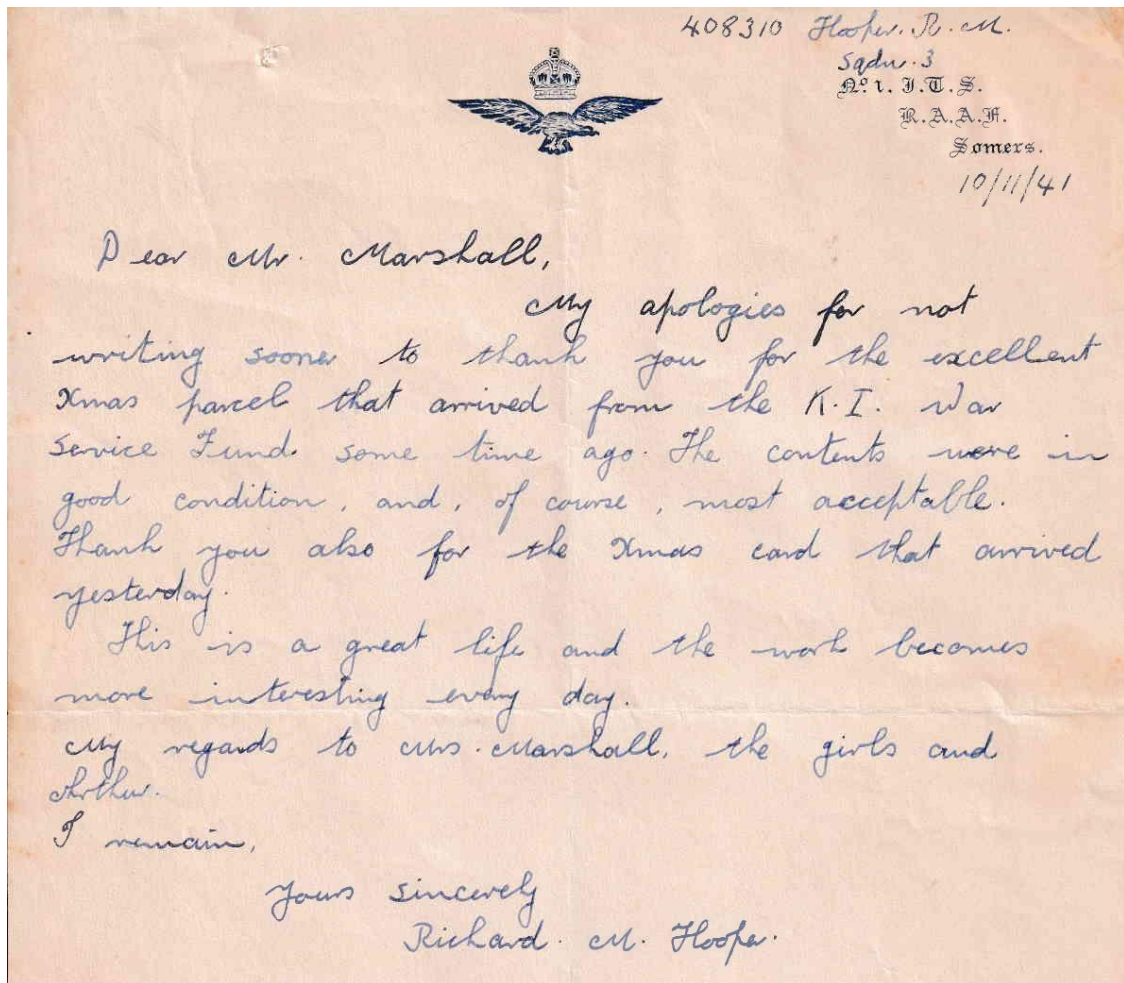 408310 Hooper. R. M.
Sqdn. 3
No. 1. I.T.S.
R.A.A.F.
Somers.
10/11/41
Dear Mr. Marshall,
My apologies for not
writing sooner to thank you for the excellent
Xmas parcel that arrived from the K.I. War
Service Fund. some time ago. The contents were in
good condition, and, of course, most acceptable.
Thank you also for the Xmas card that arrived
yesterday.
This is a great life and the work becomes
more interesting every day.
My regards to Mrs. Marshall, the girls and
Arthur.
I remain,
Yours sincerely
Richard. M. Hooper.